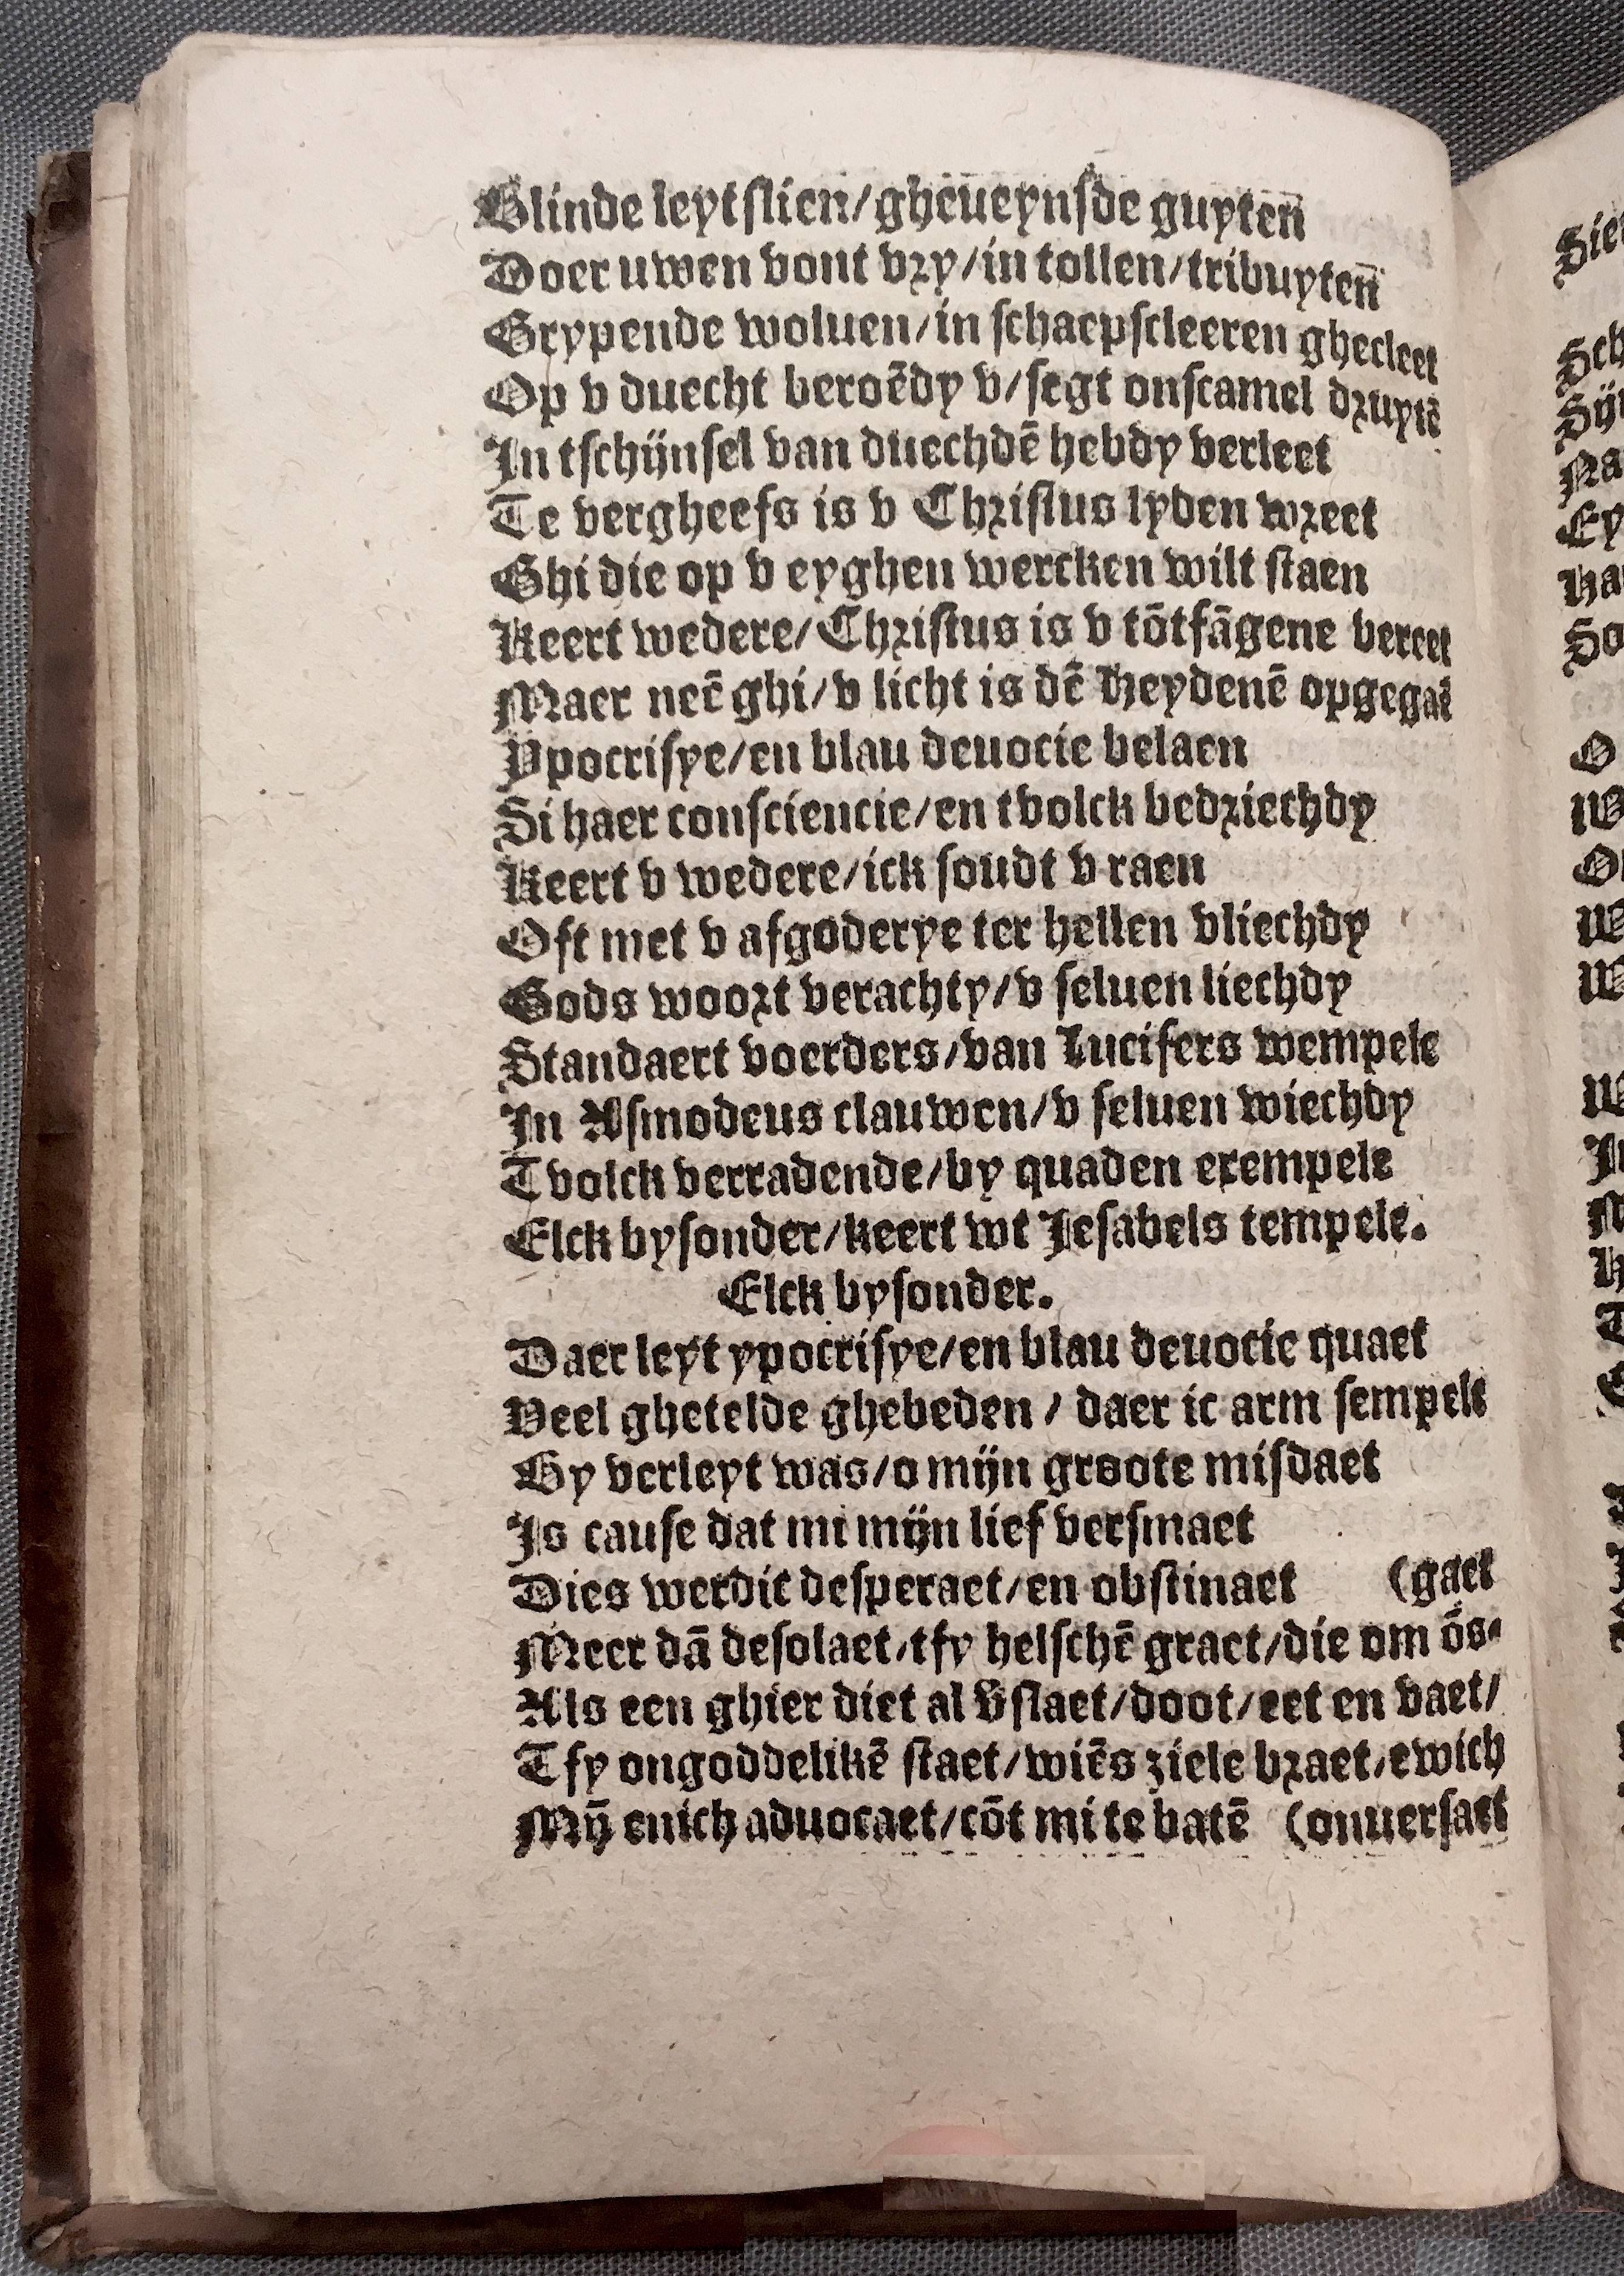 Blinde leytslien/gheueynsde guyten
Doer uwen vont vry/in tollen/tribuyten
Grypende woluen/in schaepscleeren ghecleet
Op v duecht beroēdy v/segt onscamel druytē
In tschijnsel van duechdē hebdy verleet
Te vergheefs is v Christus lyden wreet
Ghi die op v eyghen wercken wilt staen
Keert wedere/Christus is v tōtfāgene bereet
Maer neē ghi/v licht is dē Heydenē opgegaē
Ypocrisye/en blau deuocie belaen
Di haer consciencie/en tvolck bedriechdy
Keert v wedere/ick soudt v raen
Oft met v afgoderye ter hellen vliechdy
Gods woort verachty/v seluen liechdy
Standaert voerders/van Lucifers wempele
In Asmodeus clauwen/v seluen wiechdy
Tvolck verradende/by quaden exempele
Elck bysonder/keert wt Jesabels tempele.
Elck bysonder.
Daer leyt ypocrisye/en blau deuocie quaet
Veel ghetelde ghebeden / daer ic arm sempele
By verleyt was/o mijn groote misdaet
Is cause dat mi mijn lief versmaet
Dies werdic desperaet/en obstinaet (gaet
Meer dā desolaet/tfy helschē graet/die om ōs
Als een ghier diet al v̄slaet/doot/eet en vaet/
Tfy ongoddelikē staet/wiēs ziele braet/ewich
Mȳ enich aduocaet/cōt mi te batē (onuersaet
Sie
Sch
Sij
Na
Ey
Ha
So
O